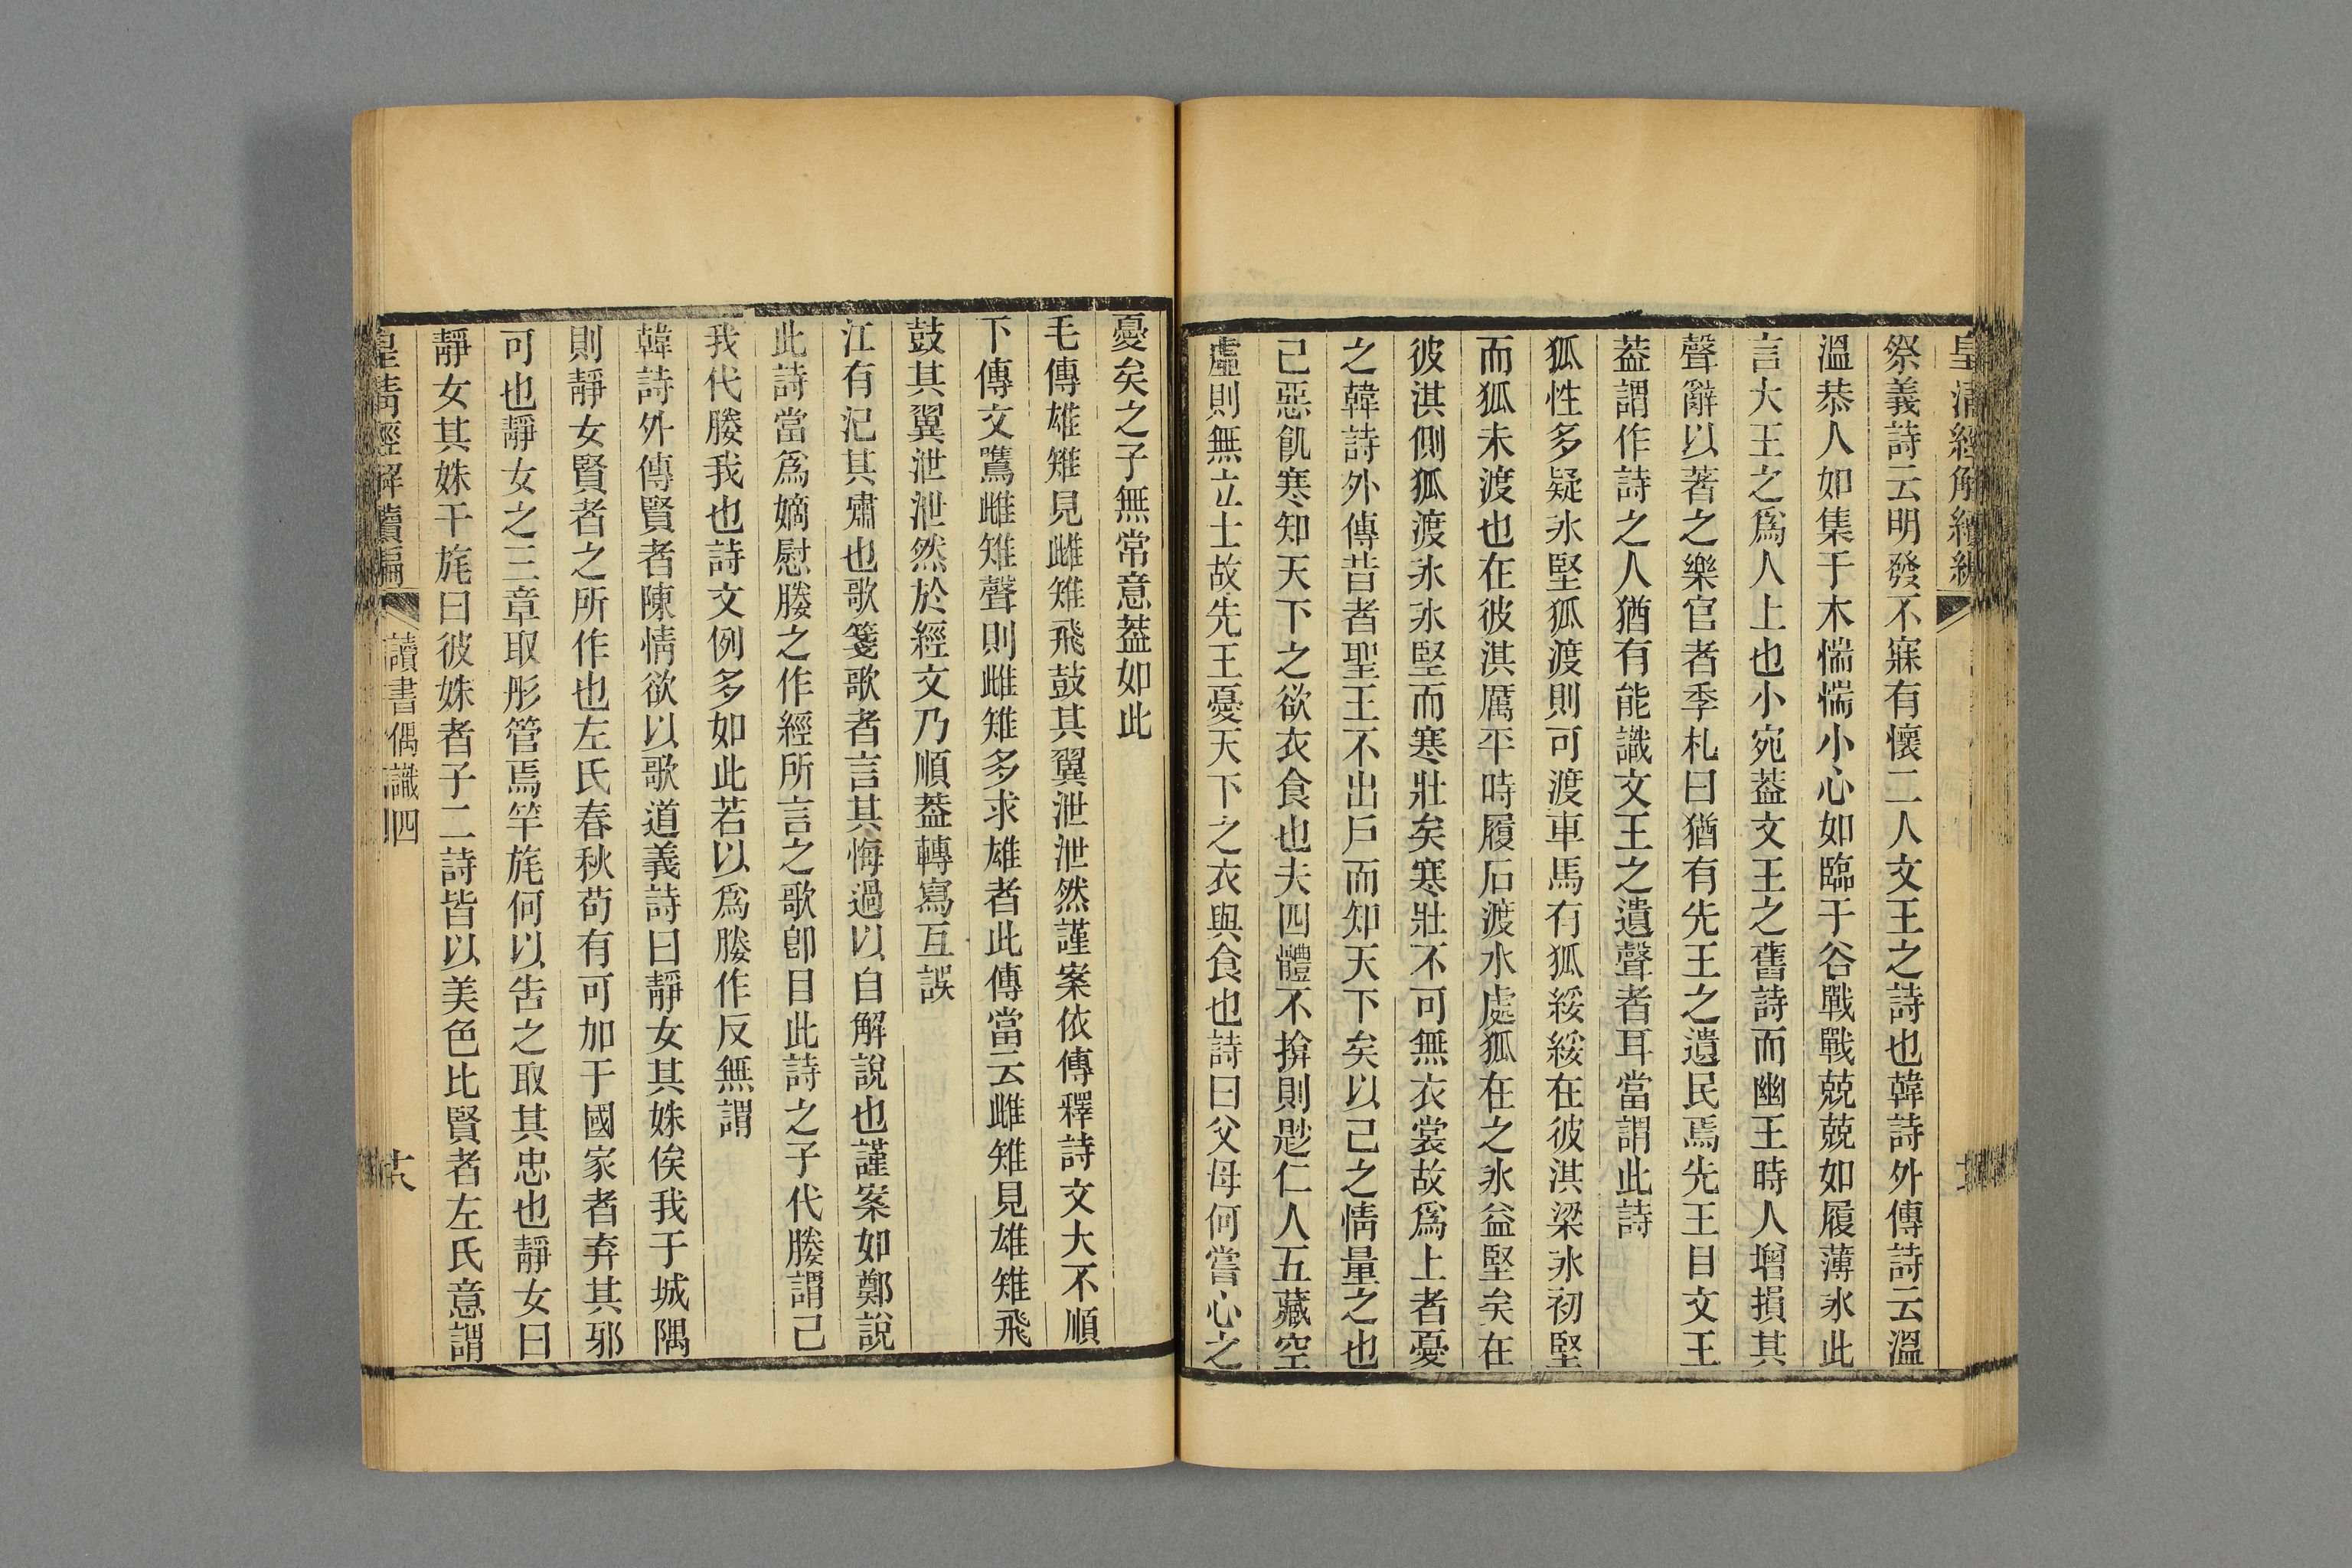 皇清經解續編
祭義詩云明發不寐有懷二人文王之詩也韓詩外傳詩云溫
溫恭人如集于木惴惴小心如臨于谷戰戰兢兢如履薄冰此
言大王之爲人上也小宛葢文王之舊詩而幽王時人增損其
聲辭以著之樂官者季札曰猶有先王之遺民焉先王目文王
葢謂作詩之人猶有能識文王之遺聲者耳當謂此詩
狐性多疑冰堅狐渡則可渡車馬有狐綏綏在彼淇梁冰初堅
而狐未渡也在彼淇厲平時履石渡水處狐在之冰益堅矣在
彼淇側狐渡冰冰堅而寒壯矣寒壯不可無衣裳故爲上者憂
之韓詩外傳昔者聖王不出戶而知天下矣以己之情量之也
己惡飢寒知天下之欲衣食也夫四體不揜則尟仁人五藏空
虛則無立士故先王憂天下之衣與食也詩曰父母何嘗心之
憂矣之子無常意葢如此
毛傳雄雉見雌雉飛鼓其翼泄泄然謹案依傳釋詩文大不順
下傳文鷕雌雉聲則雌雉多求雄者此傳當云雌雉見雄雉飛
鼓其翼泄泄然於經文乃順葢轉寫互誤
江有汜其嘯也歌箋歌者言其悔過以自解說也謹案如鄭說
此詩當爲嫡慰媵之作經所言之歌卽目此詩之子代媵謂己
我代媵我也詩文例多如此若以爲媵作反無謂
韓詩外傳賢者陳情欲以歌道義詩曰靜女其姝俟我于城隅
則靜女賢者之所作也左氏春秋苟有可加于國家者弃其邪
可也靜女之三章取彤管焉竿旄何以告之取其忠也靜女曰
靜女其姝干旄曰彼姝者子二詩皆以美色比賢者左氏意謂
皇清經解續編
讀書偶識四